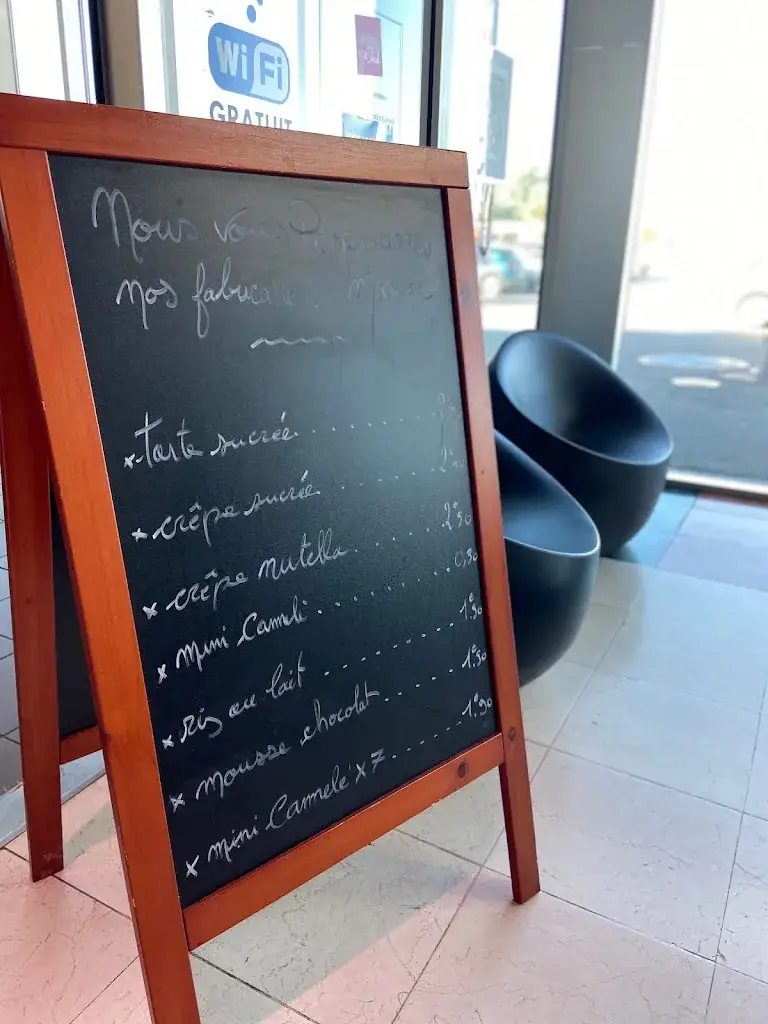 WiFi
GRATUIT
Nous vous Proposons
nos fabrications
x tarte sucrée ..........
x crêpe sucrée ..........
x crêpe nutella .......... 2€50
x mini Cameli .......... 0,30
x ris au lait .......... 1€50
x mousse chocolat .......... 1€50
x mini Cannelé x 7 .......... 1€90